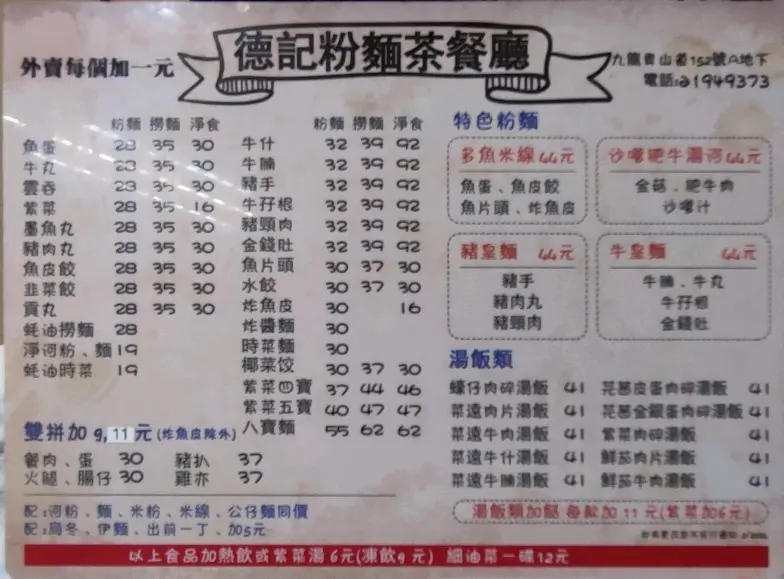 外賣每個加一元
德記粉麵茶餐廳
九龍青山道152號A地下
電話:21949373
粉麵 撈麵 淨食
魚蛋 28 35 30
牛丸 23 35 30
雲吞 23 35 30
紫菜 28 35 16
墨魚丸 28 35 30
豬肉丸 28 35 30
魚皮餃 28 35 30
韮菜餃 28 35 30
貢丸 28 35 30
蚝油撈麵 28
淨河粉、麵 19
蚝油時菜 19
粉麵 撈麵 淨食
牛什 32 39 92
牛腩 32 39 92
豬手 32 39 92
牛孖根 32 39 92
豬頸肉 32 39 92
金錢肚 32 39 92
魚片頭 30 37 30
水餃 30 37 30
炸魚皮 30 16
炸醬麵 30
時菜麵 30
椰菜饺 30 37 30
紫菜四寶 37 44 46
紫菜五寶 40 47 47
八寶麵 55 62 62
雙拼加 9, 11 元 (炸魚皮除外)
餐肉、蛋 30 豬扒 37
火腿、腸仔 30 雞亦 37
配:河粉、麵、米粉、米線、公仔麵同價
配:烏冬、伊麵、出前一丁、加5元
特色粉麵
多魚米線 44元
魚蛋、魚皮餃
魚片頭、炸魚皮
沙嗲肥牛湯河 44元
金菇、肥牛肉
沙嗲汁
豬皇麵 44元
豬手
豬肉丸
豬頸肉
牛皇麵 44元
牛腩、牛丸
牛孖根
金錢肚
湯飯類
蠔仔肉碎湯飯 41 芫荽皮蛋肉碎湯飯 41
菜遠肉片湯飯 41 芫荽金銀蛋肉碎湯飯 41
菜遠牛肉湯飯 41 紫菜肉碎湯飯 41
菜遠牛什湯飯 41 鮮茄肉片湯飯 41
菜遠牛腩湯飯 41 鮮茄牛肉湯飯 41
湯飯類加餸 每款加 11 元(紫菜加6元)
以上食品加熱飲或紫菜湯 6元(凍飲9元) 細油菜一碟12元